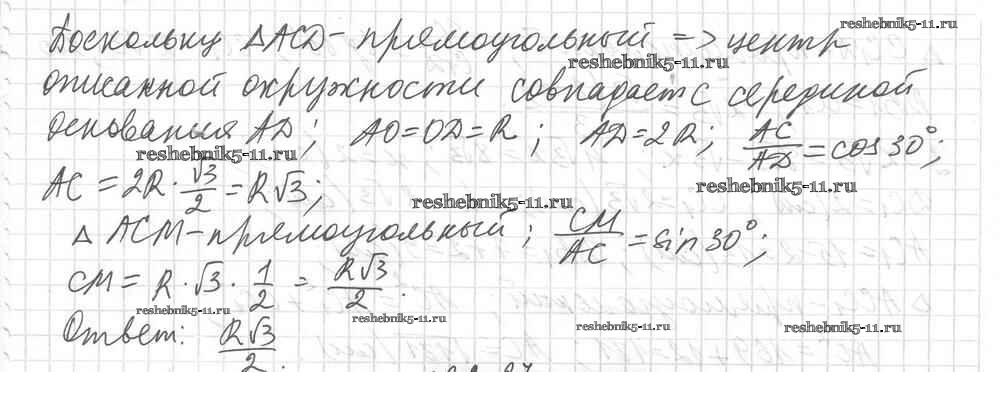 Поскольку ΔACD - прямоугольный => центр
описанной окружности совпадает с серединой
основания AD; AO=OD=R; AD=2R; AC/AD = cos 30°;
AC = 2R · √3/2 = R√3;
Δ ACM - прямоугольный; CM/AC = sin 30°;
CM = R · √3 · 1/2 = R√3/2.
Ответ: R√3/2.
reshebnik5-11.ru
reshebnik5-11.ru
reshebnik5-11.ru
reshebnik5-11.ru
reshebnik5-11.ru
reshebnik5-11.ru
reshebnik5-11.ru
reshebnik5-11.ru
reshebnik5-11.ru